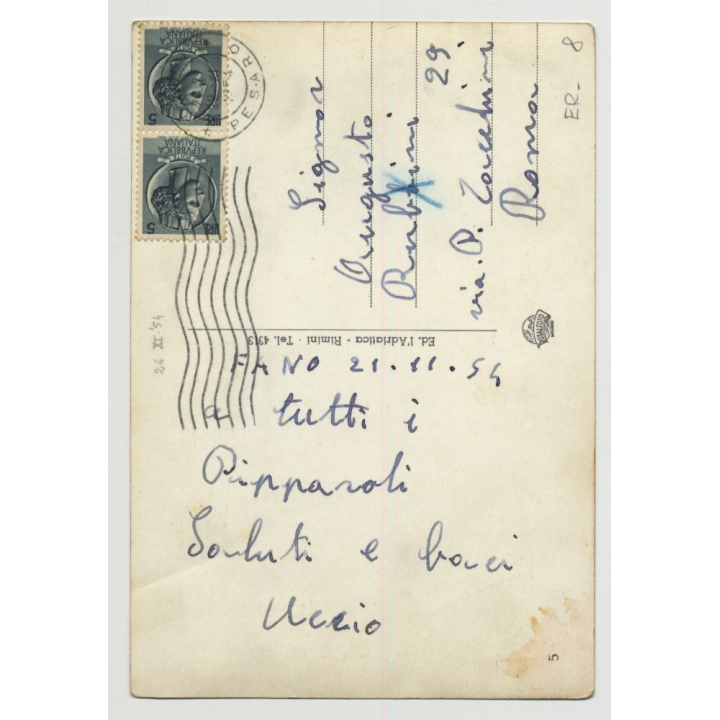 FANO 21.11.54
a tutti i
Pipparoli
Saluti e baci
Uccio
Signor
Augusto
Rubbini
via. P. Zacchini 29.
Roma
ER- 8
26 XI '54
Ed. l'Adriatica - Rimini - Tel. 4313
REPVBBLICA
ITALIANA
LIRE 5
REPVBBLICA
ITALIANA
LIRE 5
PESARO
5